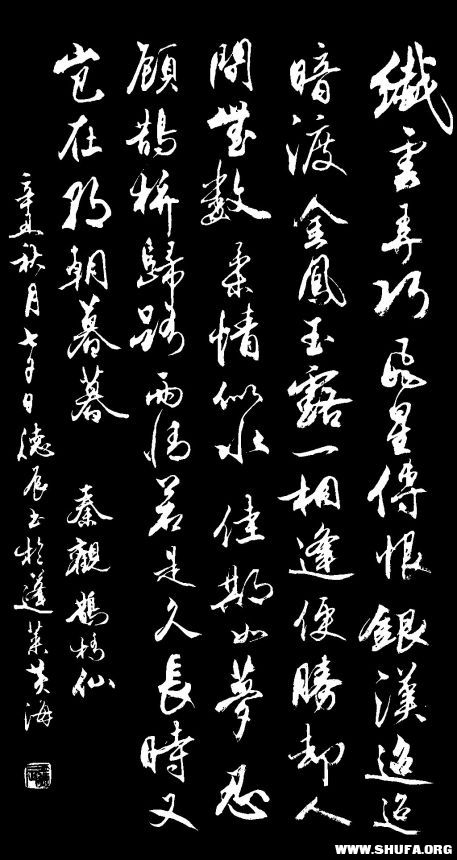 纖雲弄巧飛星傳恨銀漢迢迢
暗渡金風玉露一相逢便勝卻人
間無數柔情似水佳期如夢忍
顧鵲橋歸路兩情若是久長時又
豈在朝朝暮暮 秦觀鵲橋仙
辛丑秋月七夕日德辰書於蓬萊黃海
WWW.SHUFA.ORG